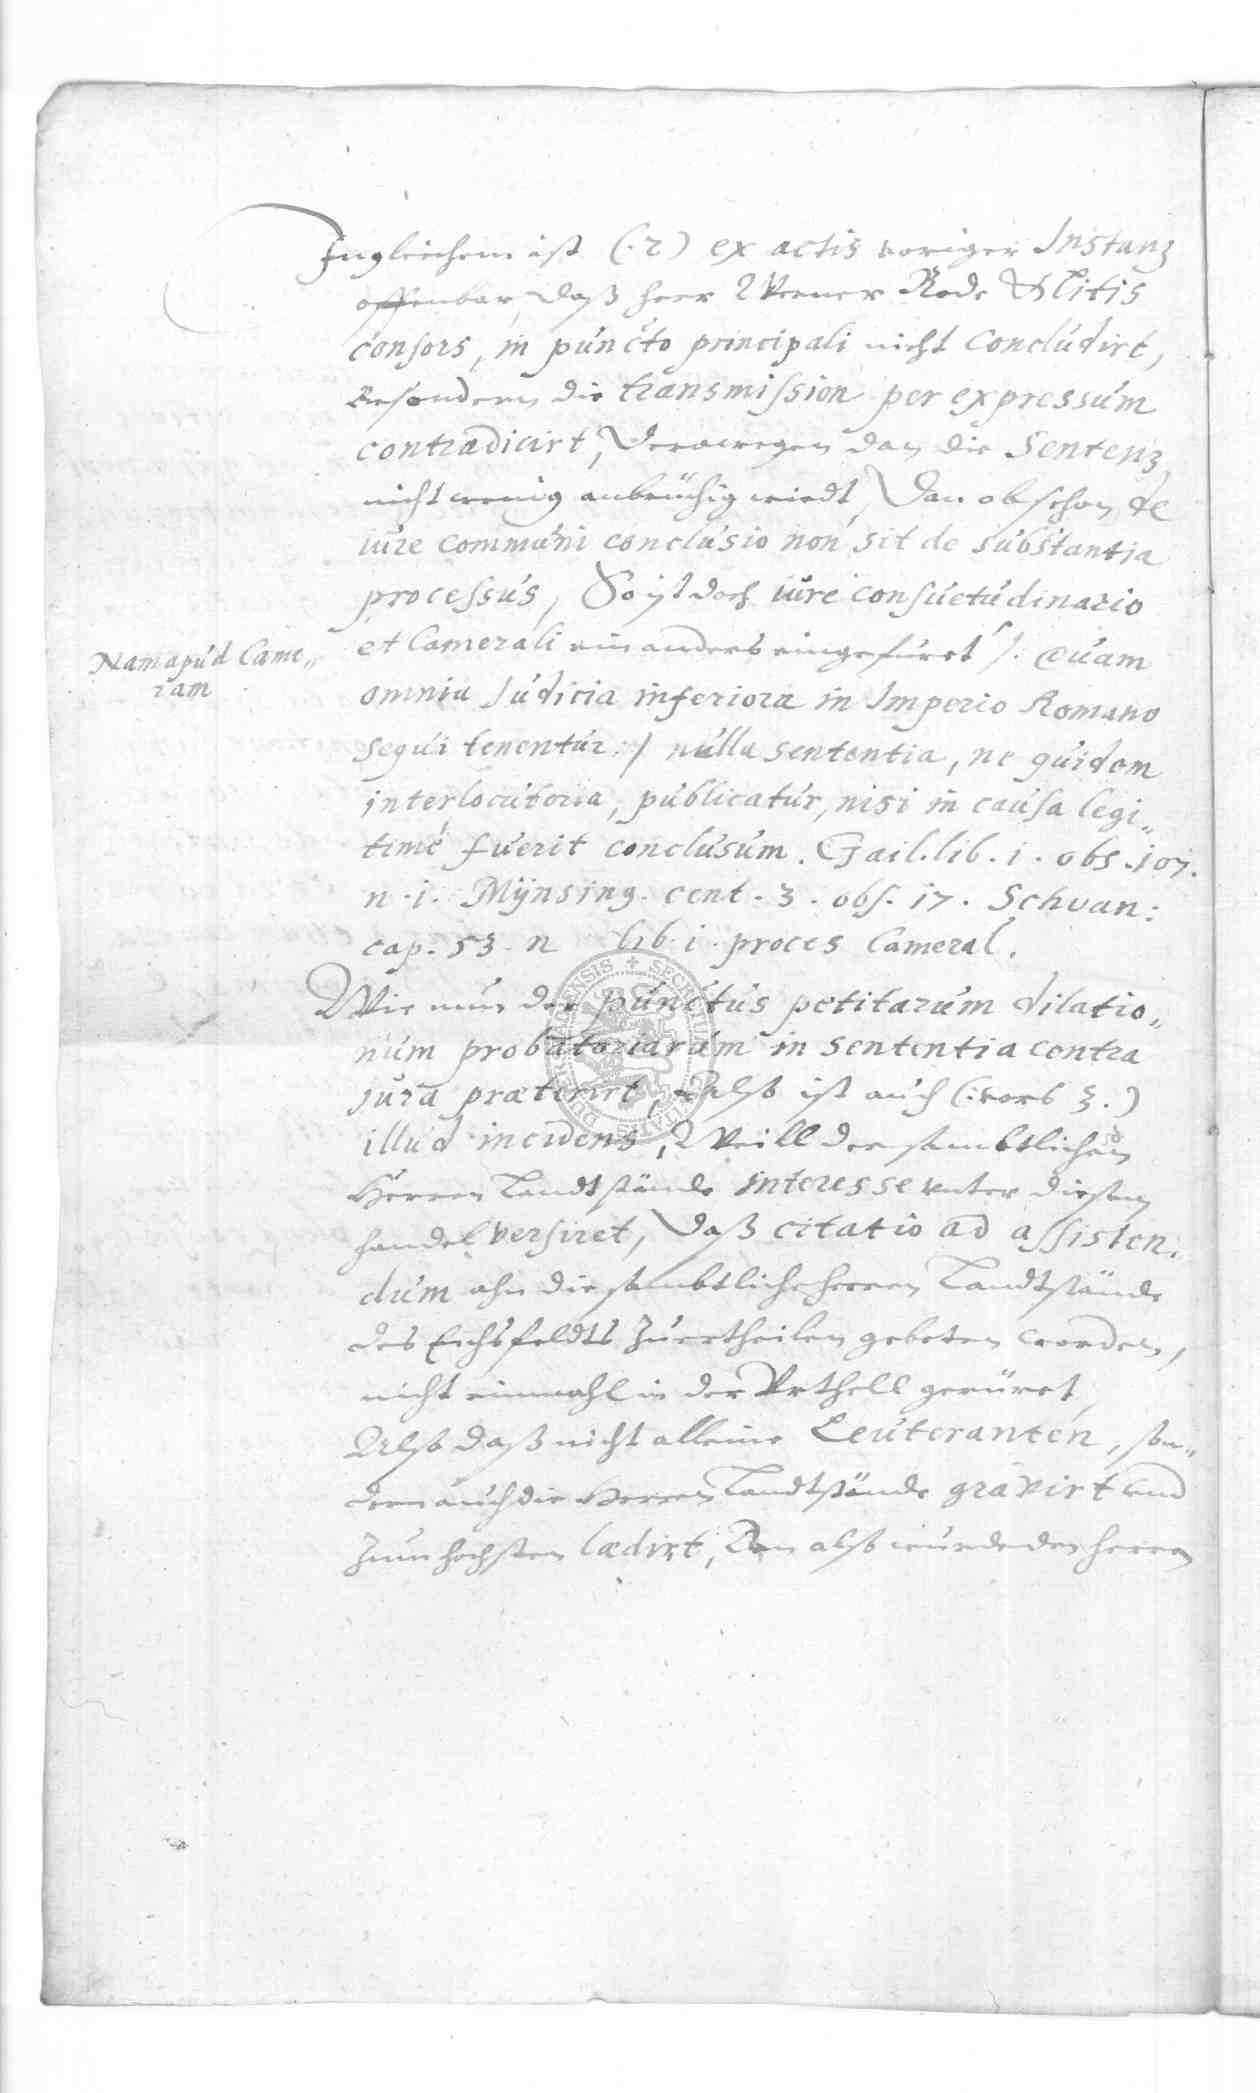 Ingleichem ist (:2) ex actis voriger Instanz
offenbar, daß Herr Werner Rode Litis
consors, in puncto principali nicht concludirt,
besondern die transmission per expressum
contradicirt, Derowegen dan die Sentenz
nicht wenig anbrüchig wirdt, Dan obschon de
iure communi conclusio non sit de substantia
processus, So ist doch iure consuetudinario
et Camerali ein anders eingefüret /: Quam
Nam apud Came„
ram
omnia Judicia inferiora in Imperio Romano
sequi tenentur :/ nulla sententia, ne quidem
interlocutoria, publicatur, nisi in causa legi„
timé fuerit conclusum. Gail. lib. i. obs. 107.
n. i. Mÿnsing. cent. 3. obs. 17. Schwan:
cap. 53. n lib. i. proces Cameral.
Wie nun der punctus petitarum dilatio„
num probatoriarum in sententia contra
jura præterirt, Also ist auch (:vors 3.)
illud incidens, Weill der sambtlichen
Herren Landtstände interesse unter diesem
handel versiret, Daß citatio ad assisten„
dum ahn die sambtliche herren Landtstände
des Eichsfeldts Zuertheilen gebeten worden,
nicht einmahl in der Urthell gerüret,
Also daß nicht alleine Leuteranten, son„
dern auch die Herren Landtstände gravirt und
Zum hochsten lædirt, Dan also wurde den herren
SECRET